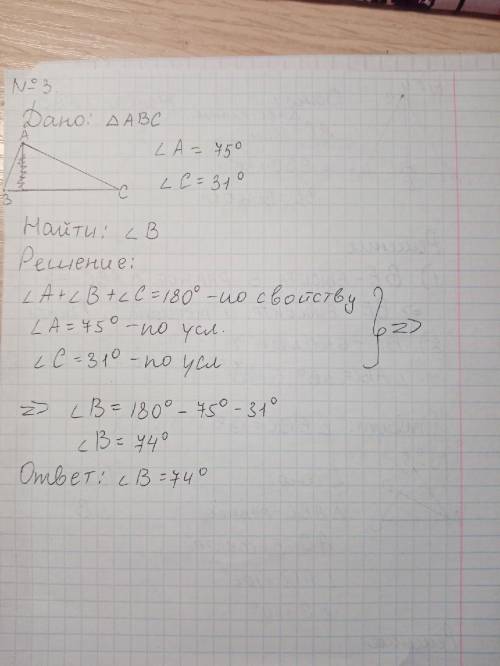 № 3.
Дано: △ABC
A
∠A = 75°
∠C = 31°
B C
Найти: ∠B
Решение:
∠A+∠B+∠C=180° -по свойству
∠A=75° -по усл.
∠C=31° -по усл
=>
=> ∠B= 180° - 75° - 31°
∠B= 74°
Ответ: ∠B =74°